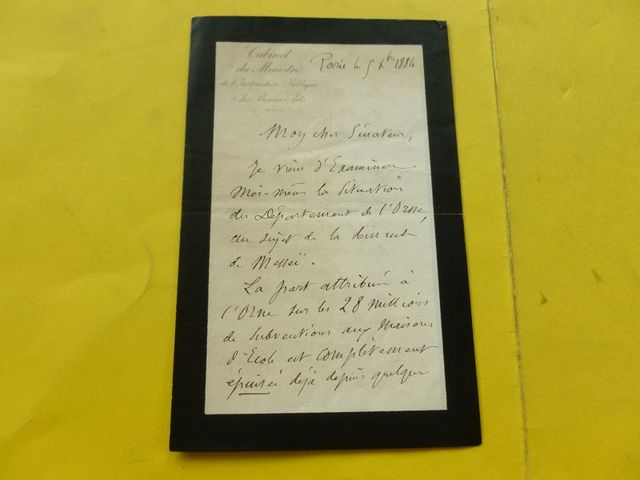 Cabinet
du Ministre
de l'Instruction Publique
& des Beaux-Arts
Paris le 5 Xbre 1884
Mon cher Sénateur,
Je viens d'Examiner
Moi-même la Situation
du Département de l'Orne,
au sujet de la demande
de Messeï.
La part attribuée à
l'Orne sur les 28 millions
de Subventions aux Maisons
d'Ecole est complètement
épuisée déjà depuis quelque